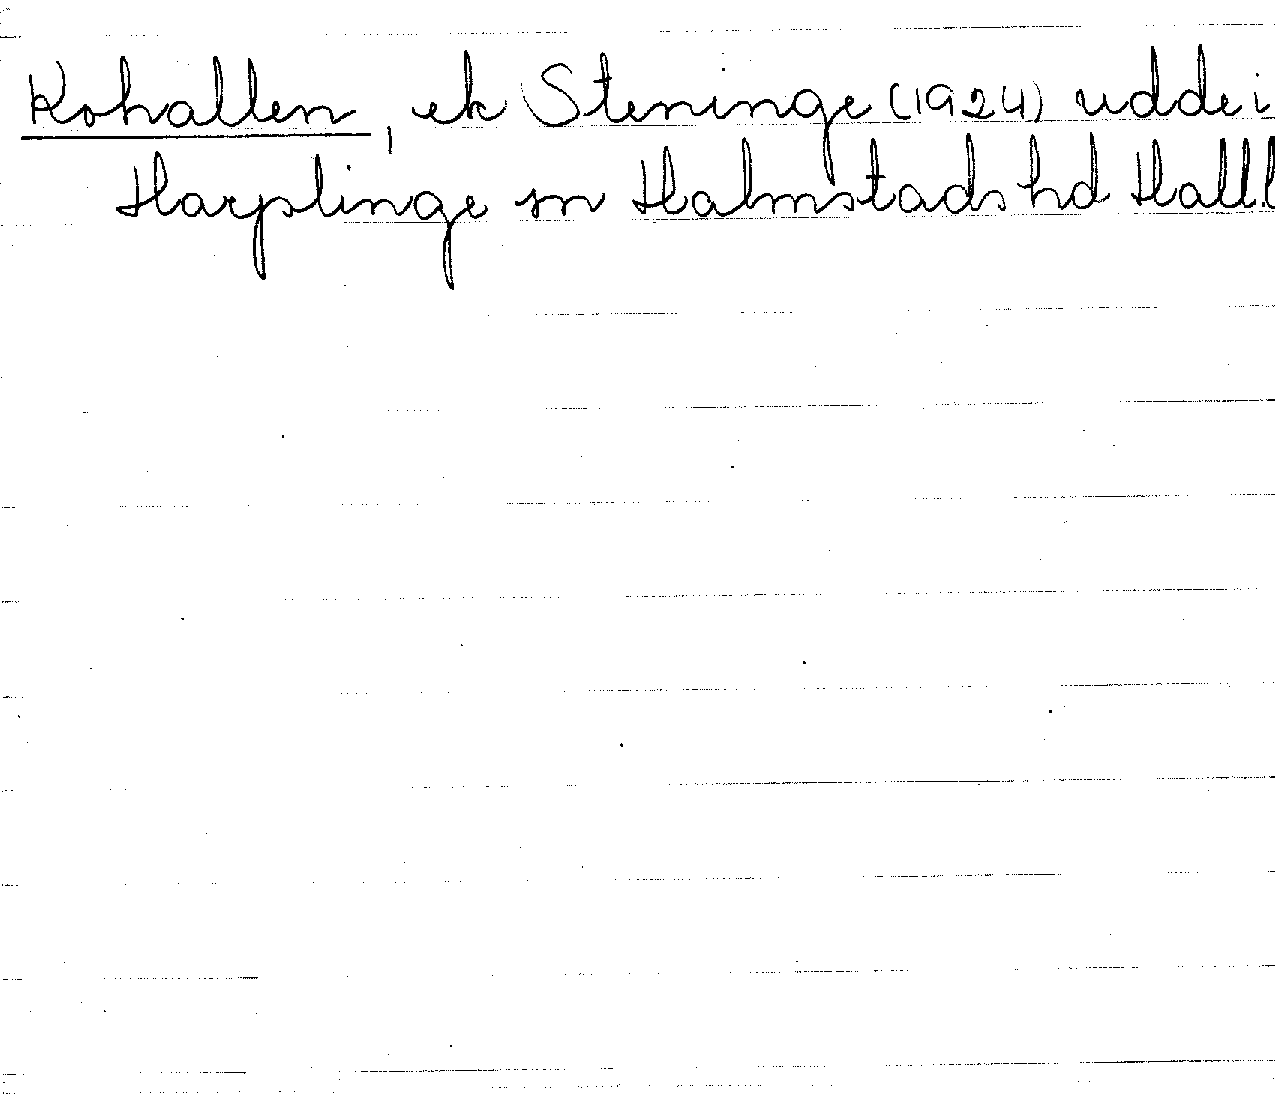 Kohallen, ek Steninge (1924) udde i
Harplinge sn Halmstads hd Hall.l